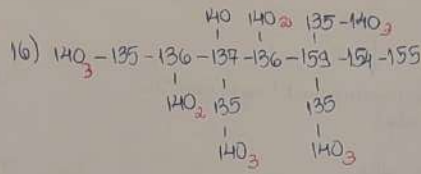 140 140 2 135-140 3
16) 140 3-135-136-137-136-159-154-155
140 2 135 135
140 3 140 3